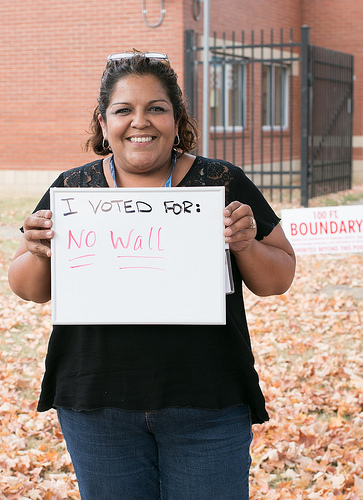 I VOTED FOR:
No Wall
100 FT.
BOUNDARY